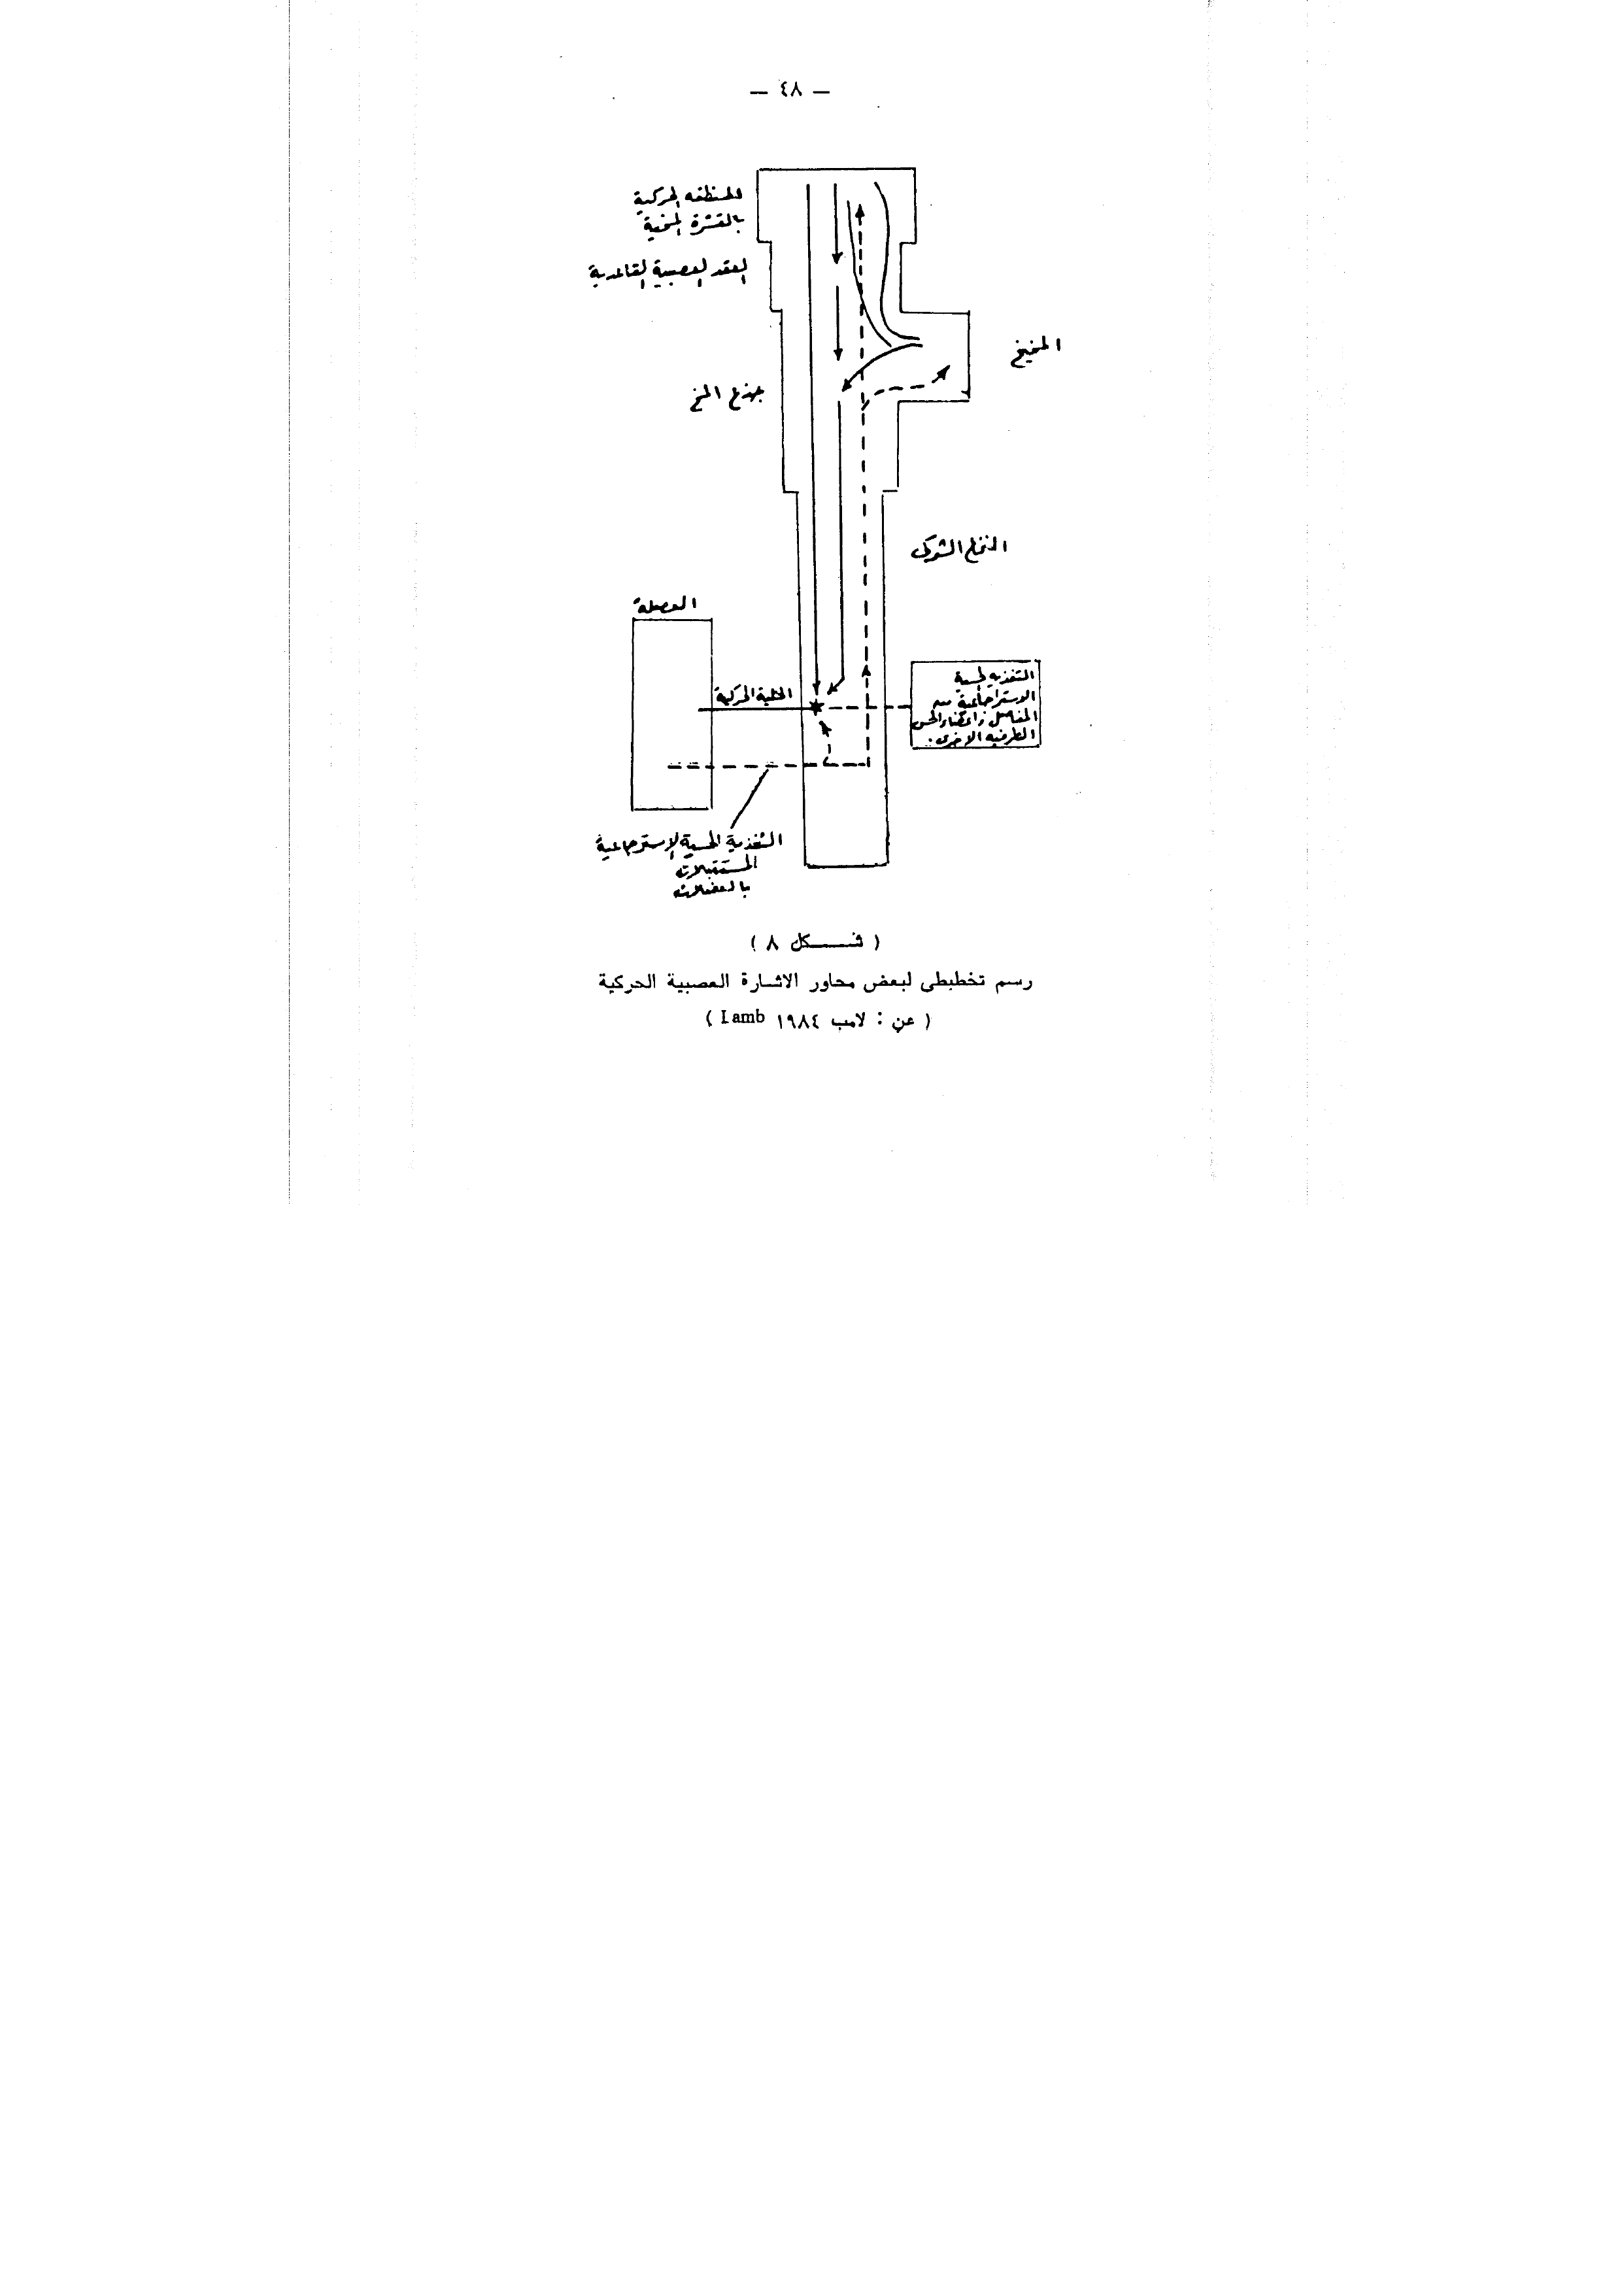 — ٤٨ —
المنطقه الحركية
بالقشرة المخية
العقد العصبية القاعدية
المخيخ
جذع المخ
النخاع الشوكى
العضلة
الخلية الحركية
التغذيه الحسية
الاسترجاعية من
المفاصل واعضاء الحس
الطرفيه الاخرى .
التغذية الحسية الإسترجاعية
المستقبلات
بالعضلات
( شـــكل ٨ )
رسم تخطيطى لبعض محاور الاشارة العصبية الحركية
( عن : لامب ١٩٨٤ Lamb )